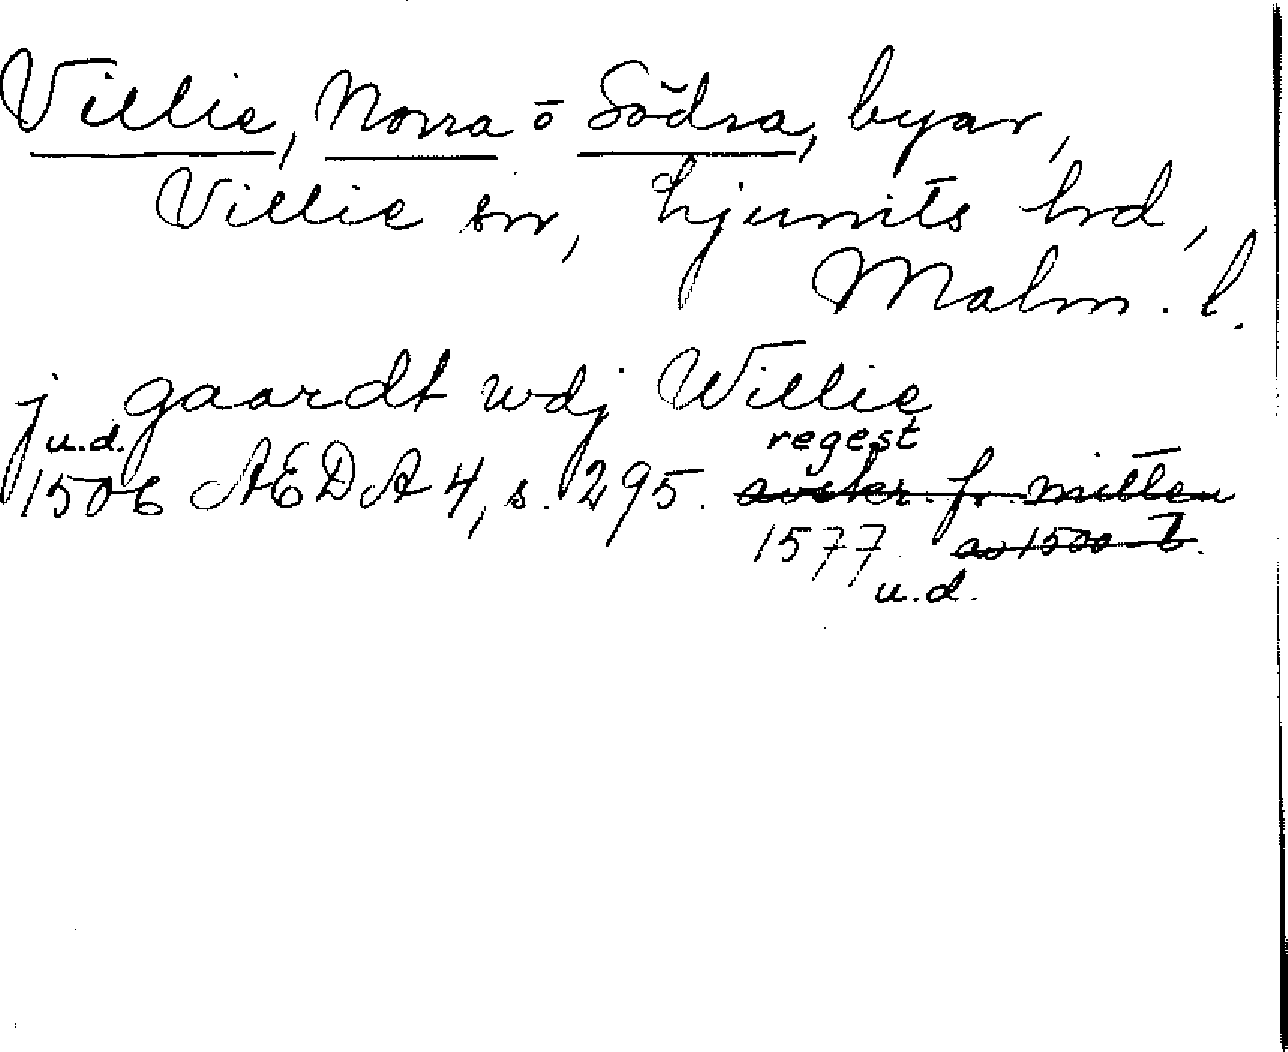 Villie, Norra o Södra, byar,
Villie sn, Ljunits hrd,
Malm. l.
j gaardt wdj Willie
u.d. regest
1506 AEDA 4, s. 295. avskr. fr. mitten
1577 av 1500-t.
u.d.